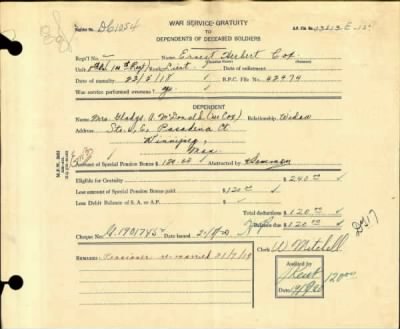 WAR SERVICE GRATUITY
TO
DEPENDENTS OF DECEASED SOLDIERS
Register No. DG1054
Reg'l No. Name Ernest Herbert Cox
(Christian Name) (Surname)
Unit Lieut Date of enlistment
Date of death 23/5/18 B.P.C. File No. 42974
Was service performed overseas? yes
DEPENDENT
Name Mrs. Gladys A. McDonald (nee Cox) Relationship Widow
Address Ste. 5, C, Pasadena Ct
Winnipeg,
Man
Amount of Special Pension Bonus $ 120.00 Abstracted by
Eligible for Gratuity $ 240.00
Less amount of Special Pension Bonus paid $ 120.00
Less Debit Balance of S.A. or A.P. $
Total deductions $ 120.00
Balance due $ 120.00
Cheque No. G.1901745 Date issued
Clerk W. Mitchell
REMARKS: Pensioner re-married 21/7/19
Audited by
120.00
Date